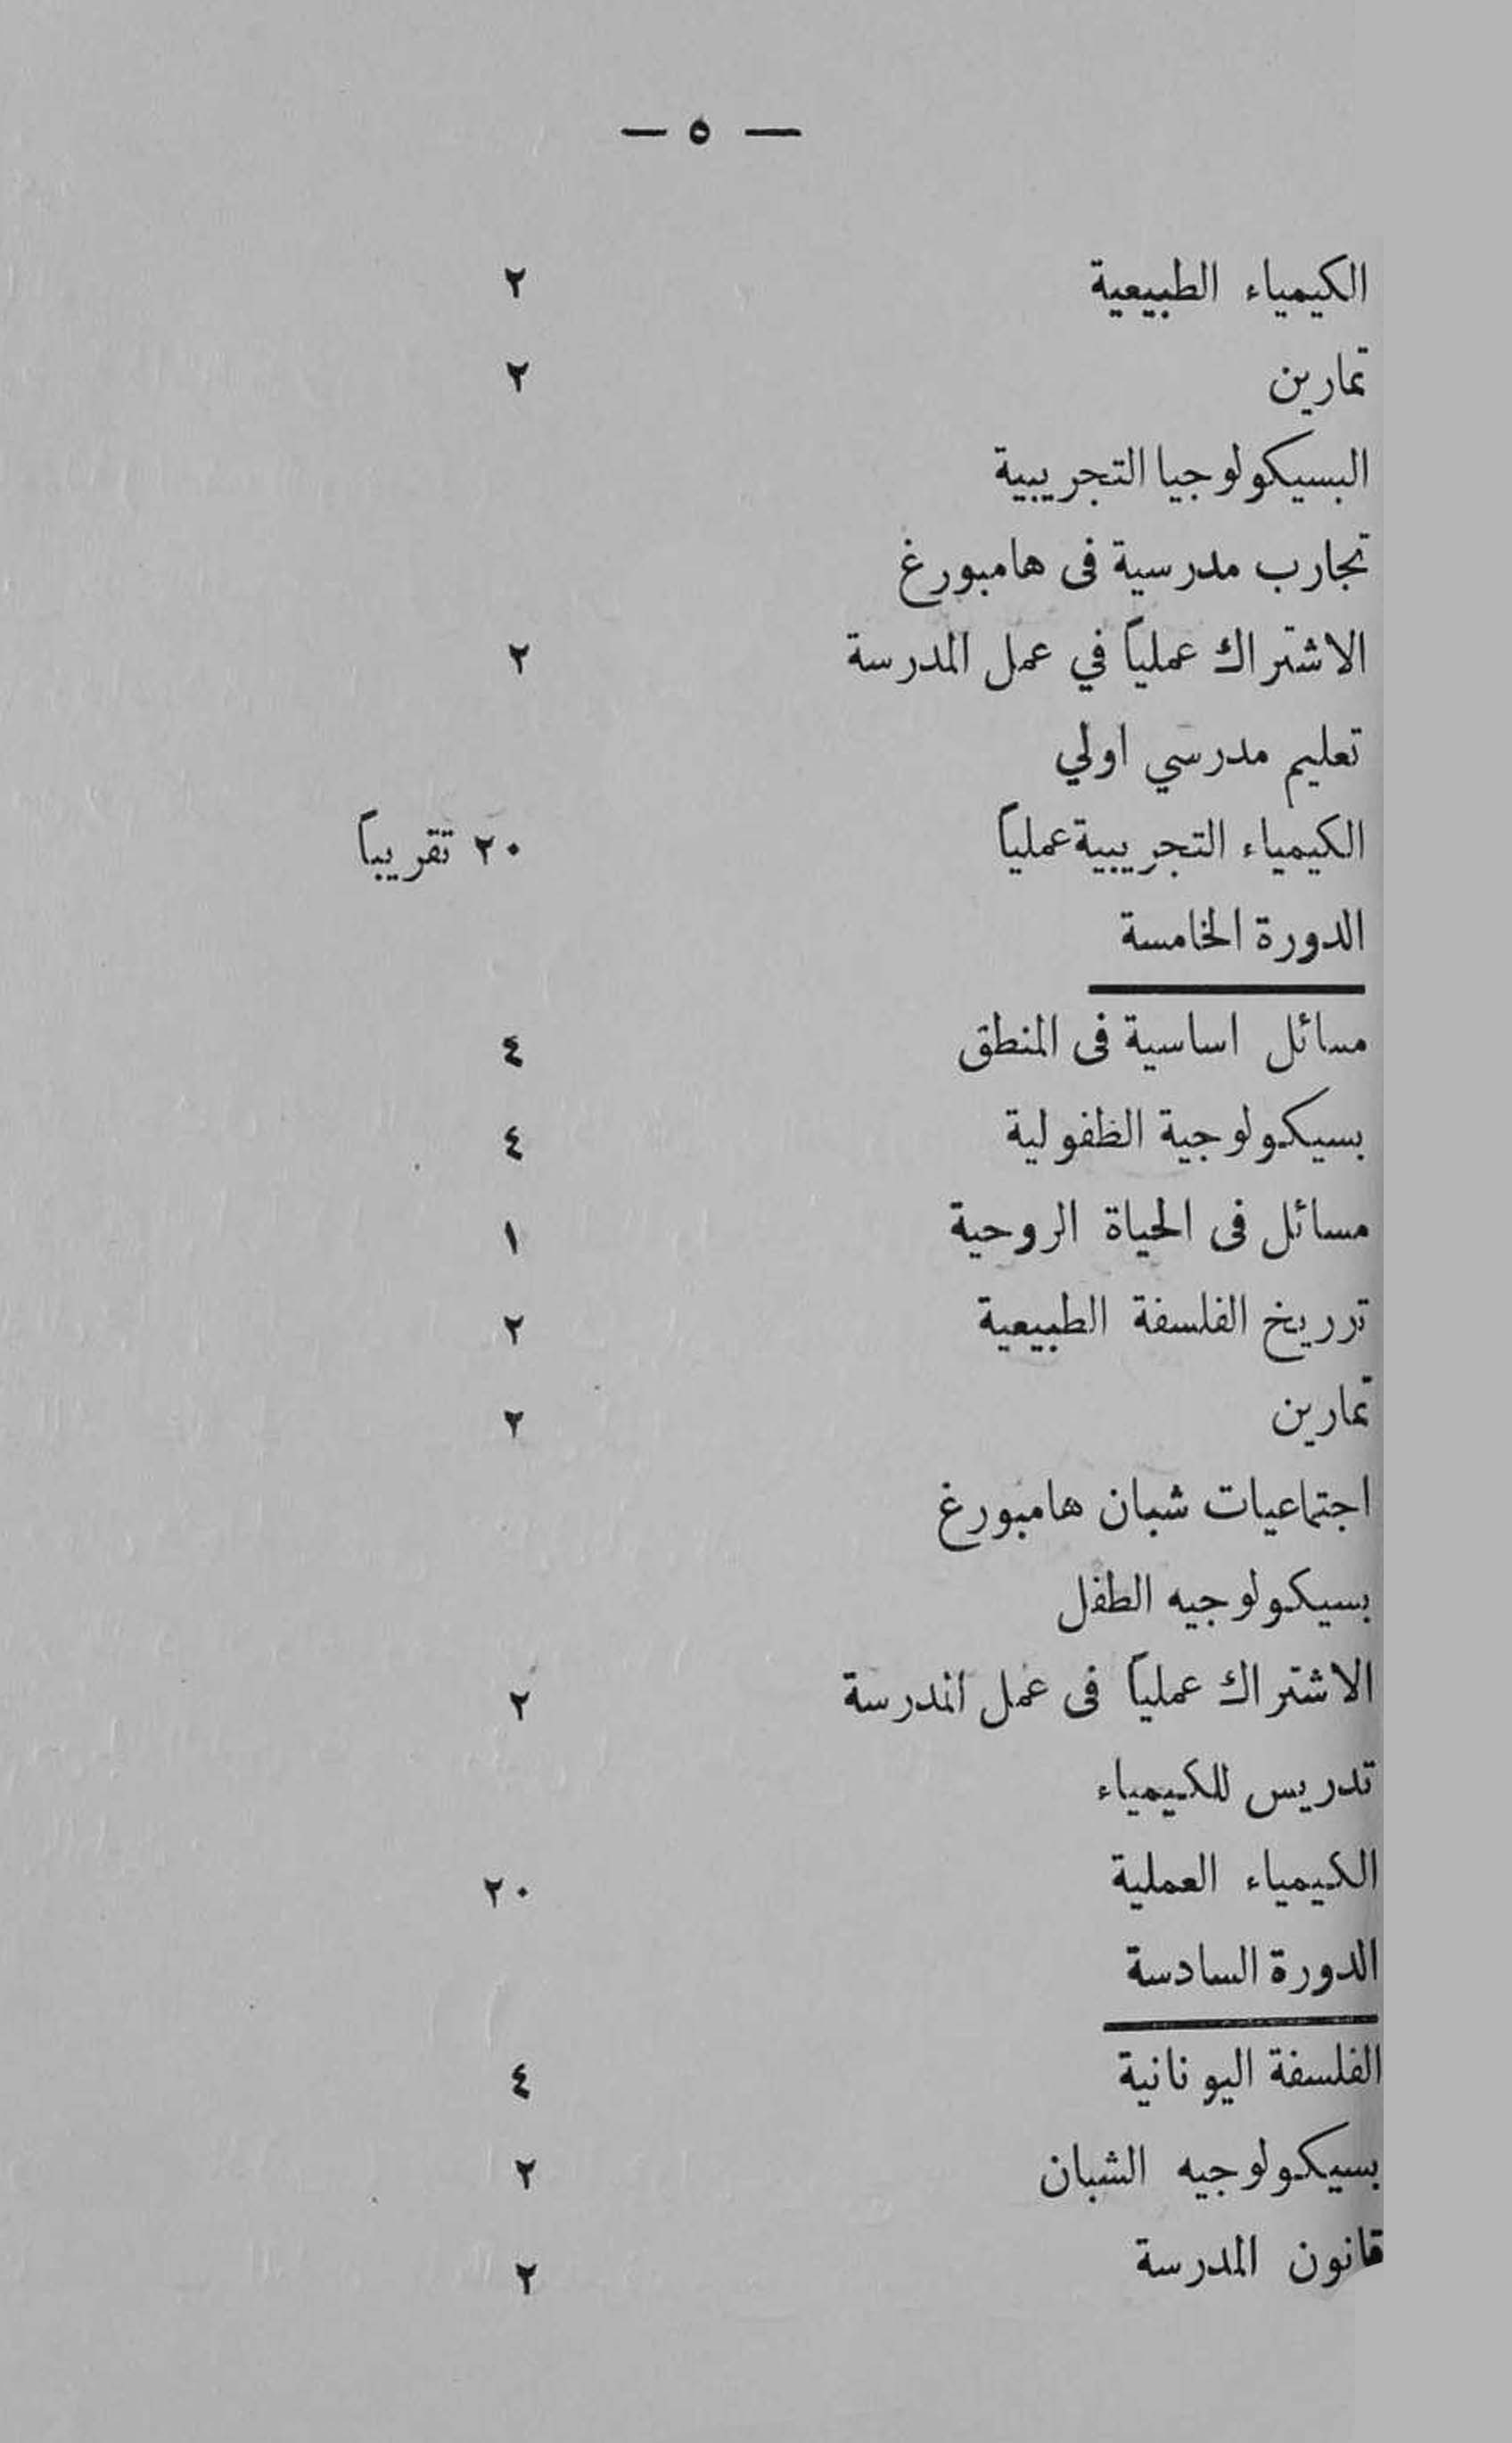 — ٥ —
الكيمياء الطبيعية ٢
تمارين ٢
البسيكولوجيا التجريبية
تجارب مدرسية فى هامبورغ
الاشتراك عملياً في عمل المدرسة ٢
تعليم مدرسي اولي
الكيمياء التجريبية عملياً ٢٠ تقريباً
الدورة الخامسة
مسائل اساسية فى المنطق ٤
بسيكولوجية الظفولية ٤
مسائل فى الحياة الروحية ١
ترريخ الفلسفة الطبيعية ٢
تمارين ٢
اجتماعيات شبان هامبورغ
بسيكولوجيه الطفل
الاشتراك عملياً فى عمل المدرسة ٢
تدريس للكيمياء
الكيمياء العملية ٢٠
الدورة السادسة
الفلسفة اليونانية ٤
بسيكولوجيه الشبان ٢
قانون المدرسة ٢